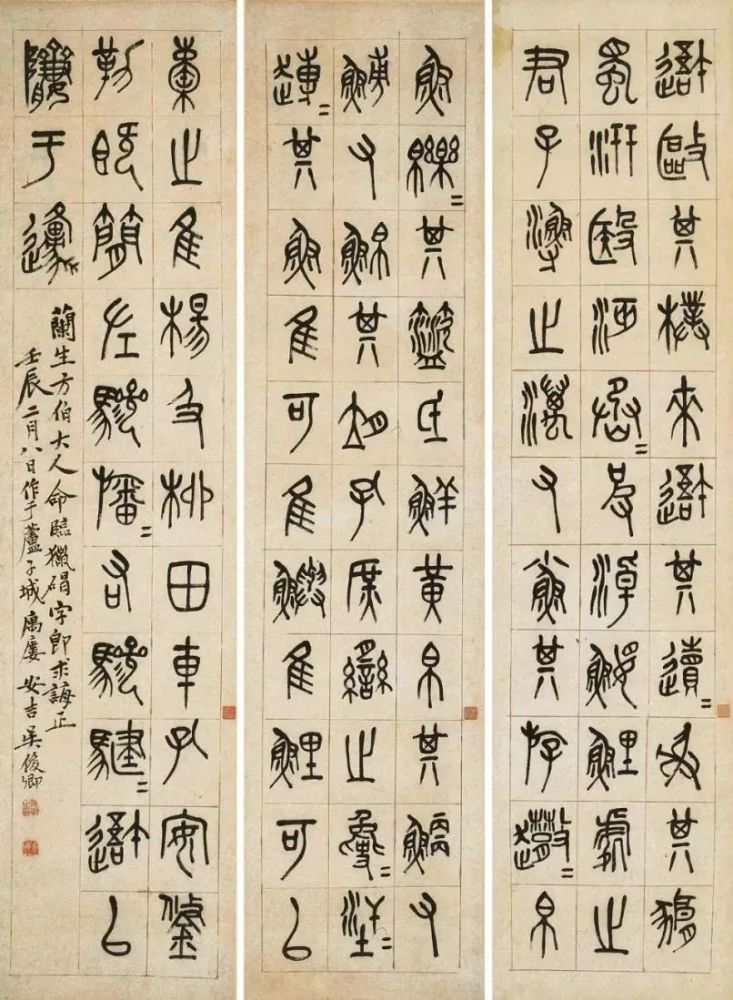 避毆其樸來避其遺=射其豜
蜀汧殹沔烝=彼淖鰋鯉處之
君子漁之澫又鯊其斿帛
魚鱳=其盜氐鮮黃帛其鯿又
鱄又鮊其孔庶臠之
其魚隹可隹鱮隹鯉可以
橐之隹楊及柳田車孔安鋚
勒既簡左驂旛=右驂騝=避以
隮于邍
蘭生方伯大人命臨獵碣字即求誨正
壬辰二月八日作于蘆子城寓廔 安吉吳俊卿